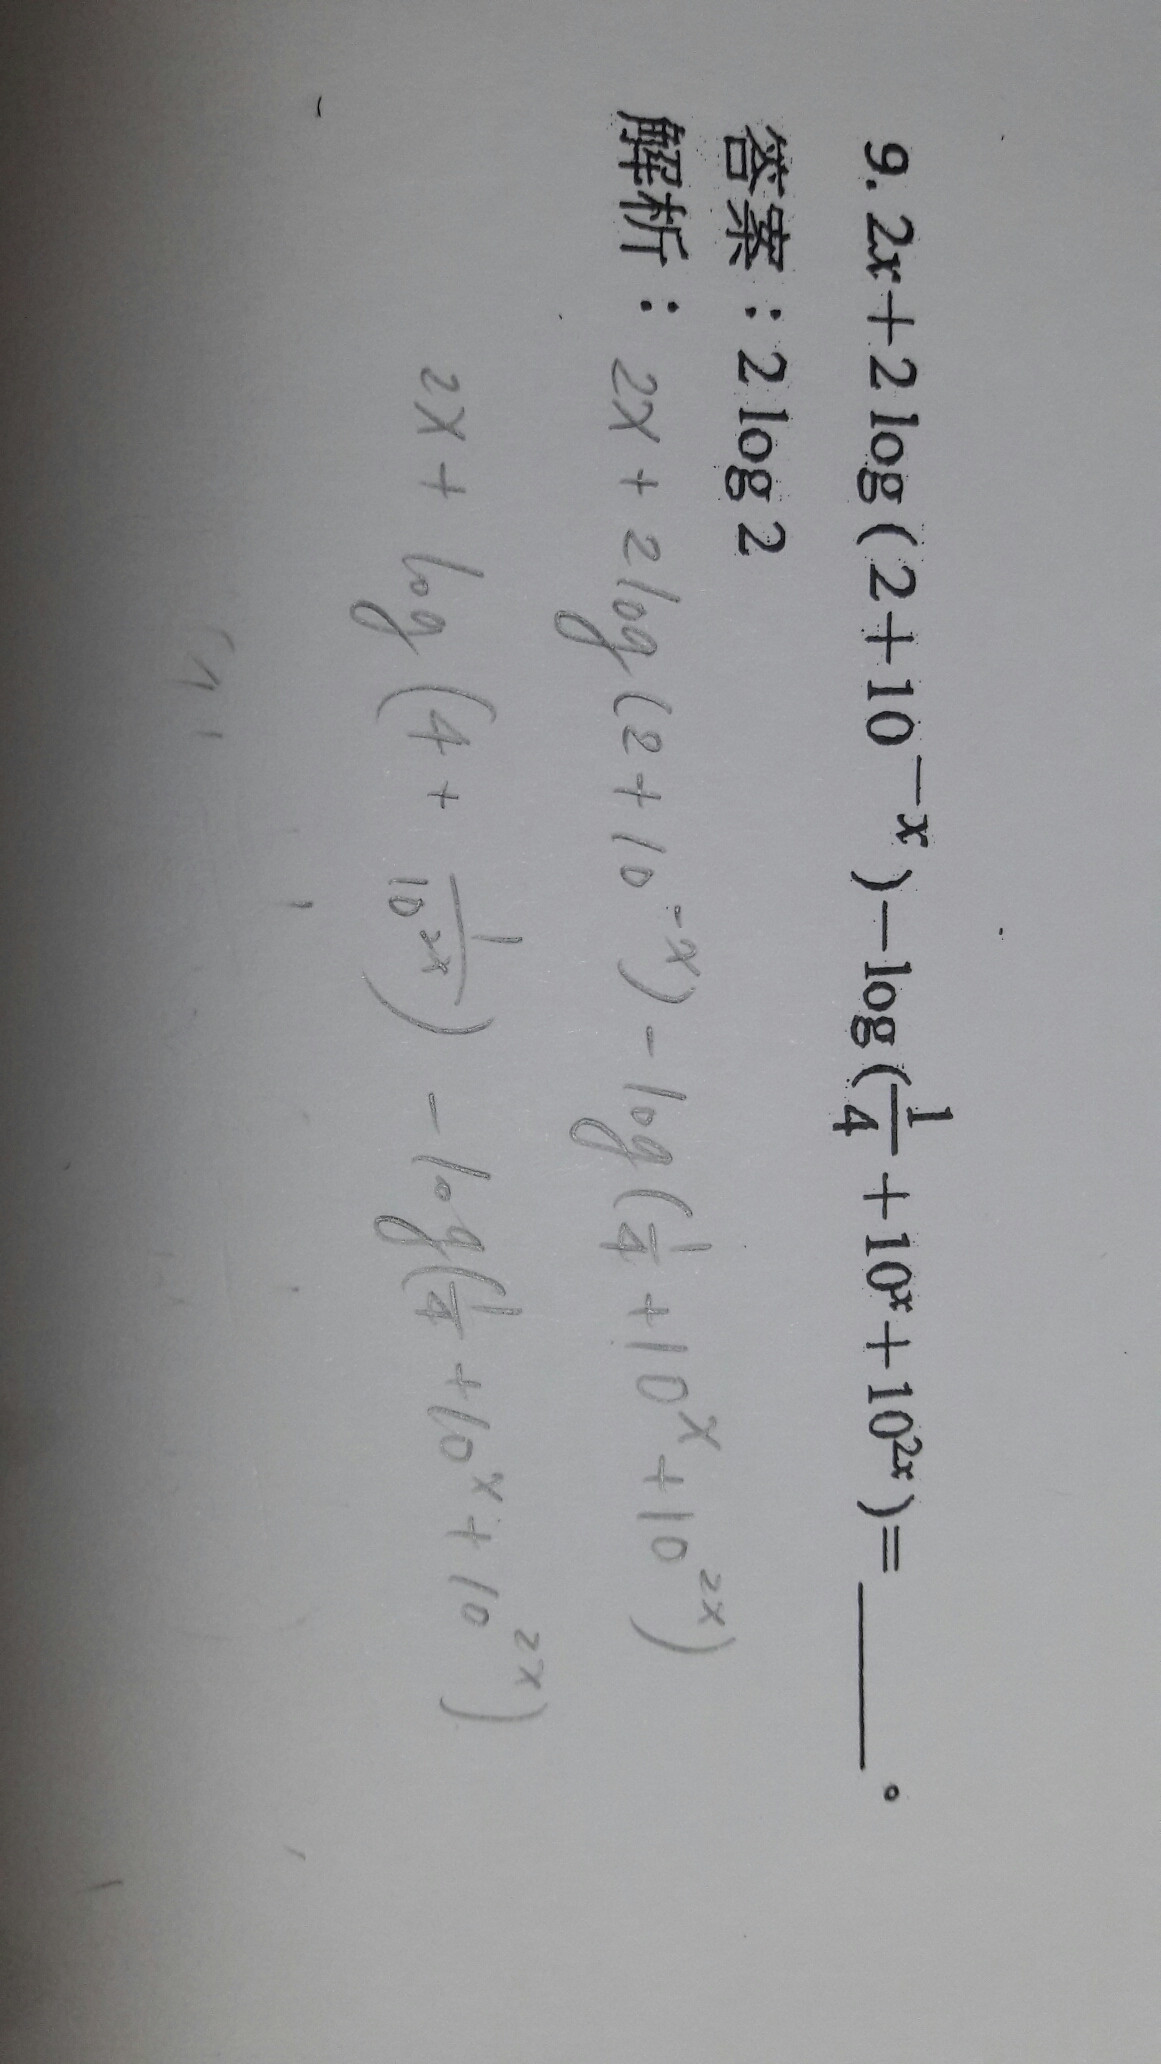 9. 2x+2log(2+10^{-x})-log(\frac{1}{4}+10^{x}+10^{2x})=______。
答案:2log2
解析: 2x+2log(2+10^{-x})-log(\frac{1}{4}+10^{x}+10^{2x})
2x+log(4+\frac{1}{10^{2x}})-log(\frac{1}{4}+10^{x}+10^{2x})